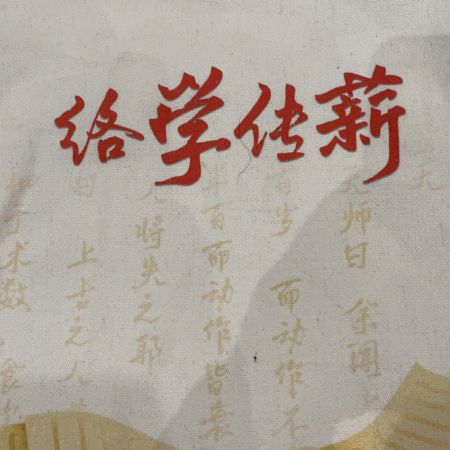 络学传薪
师曰 余闻
百岁 而动作不
半百而动作皆衰
人将失之耶
曰 上古之人
于术数 食